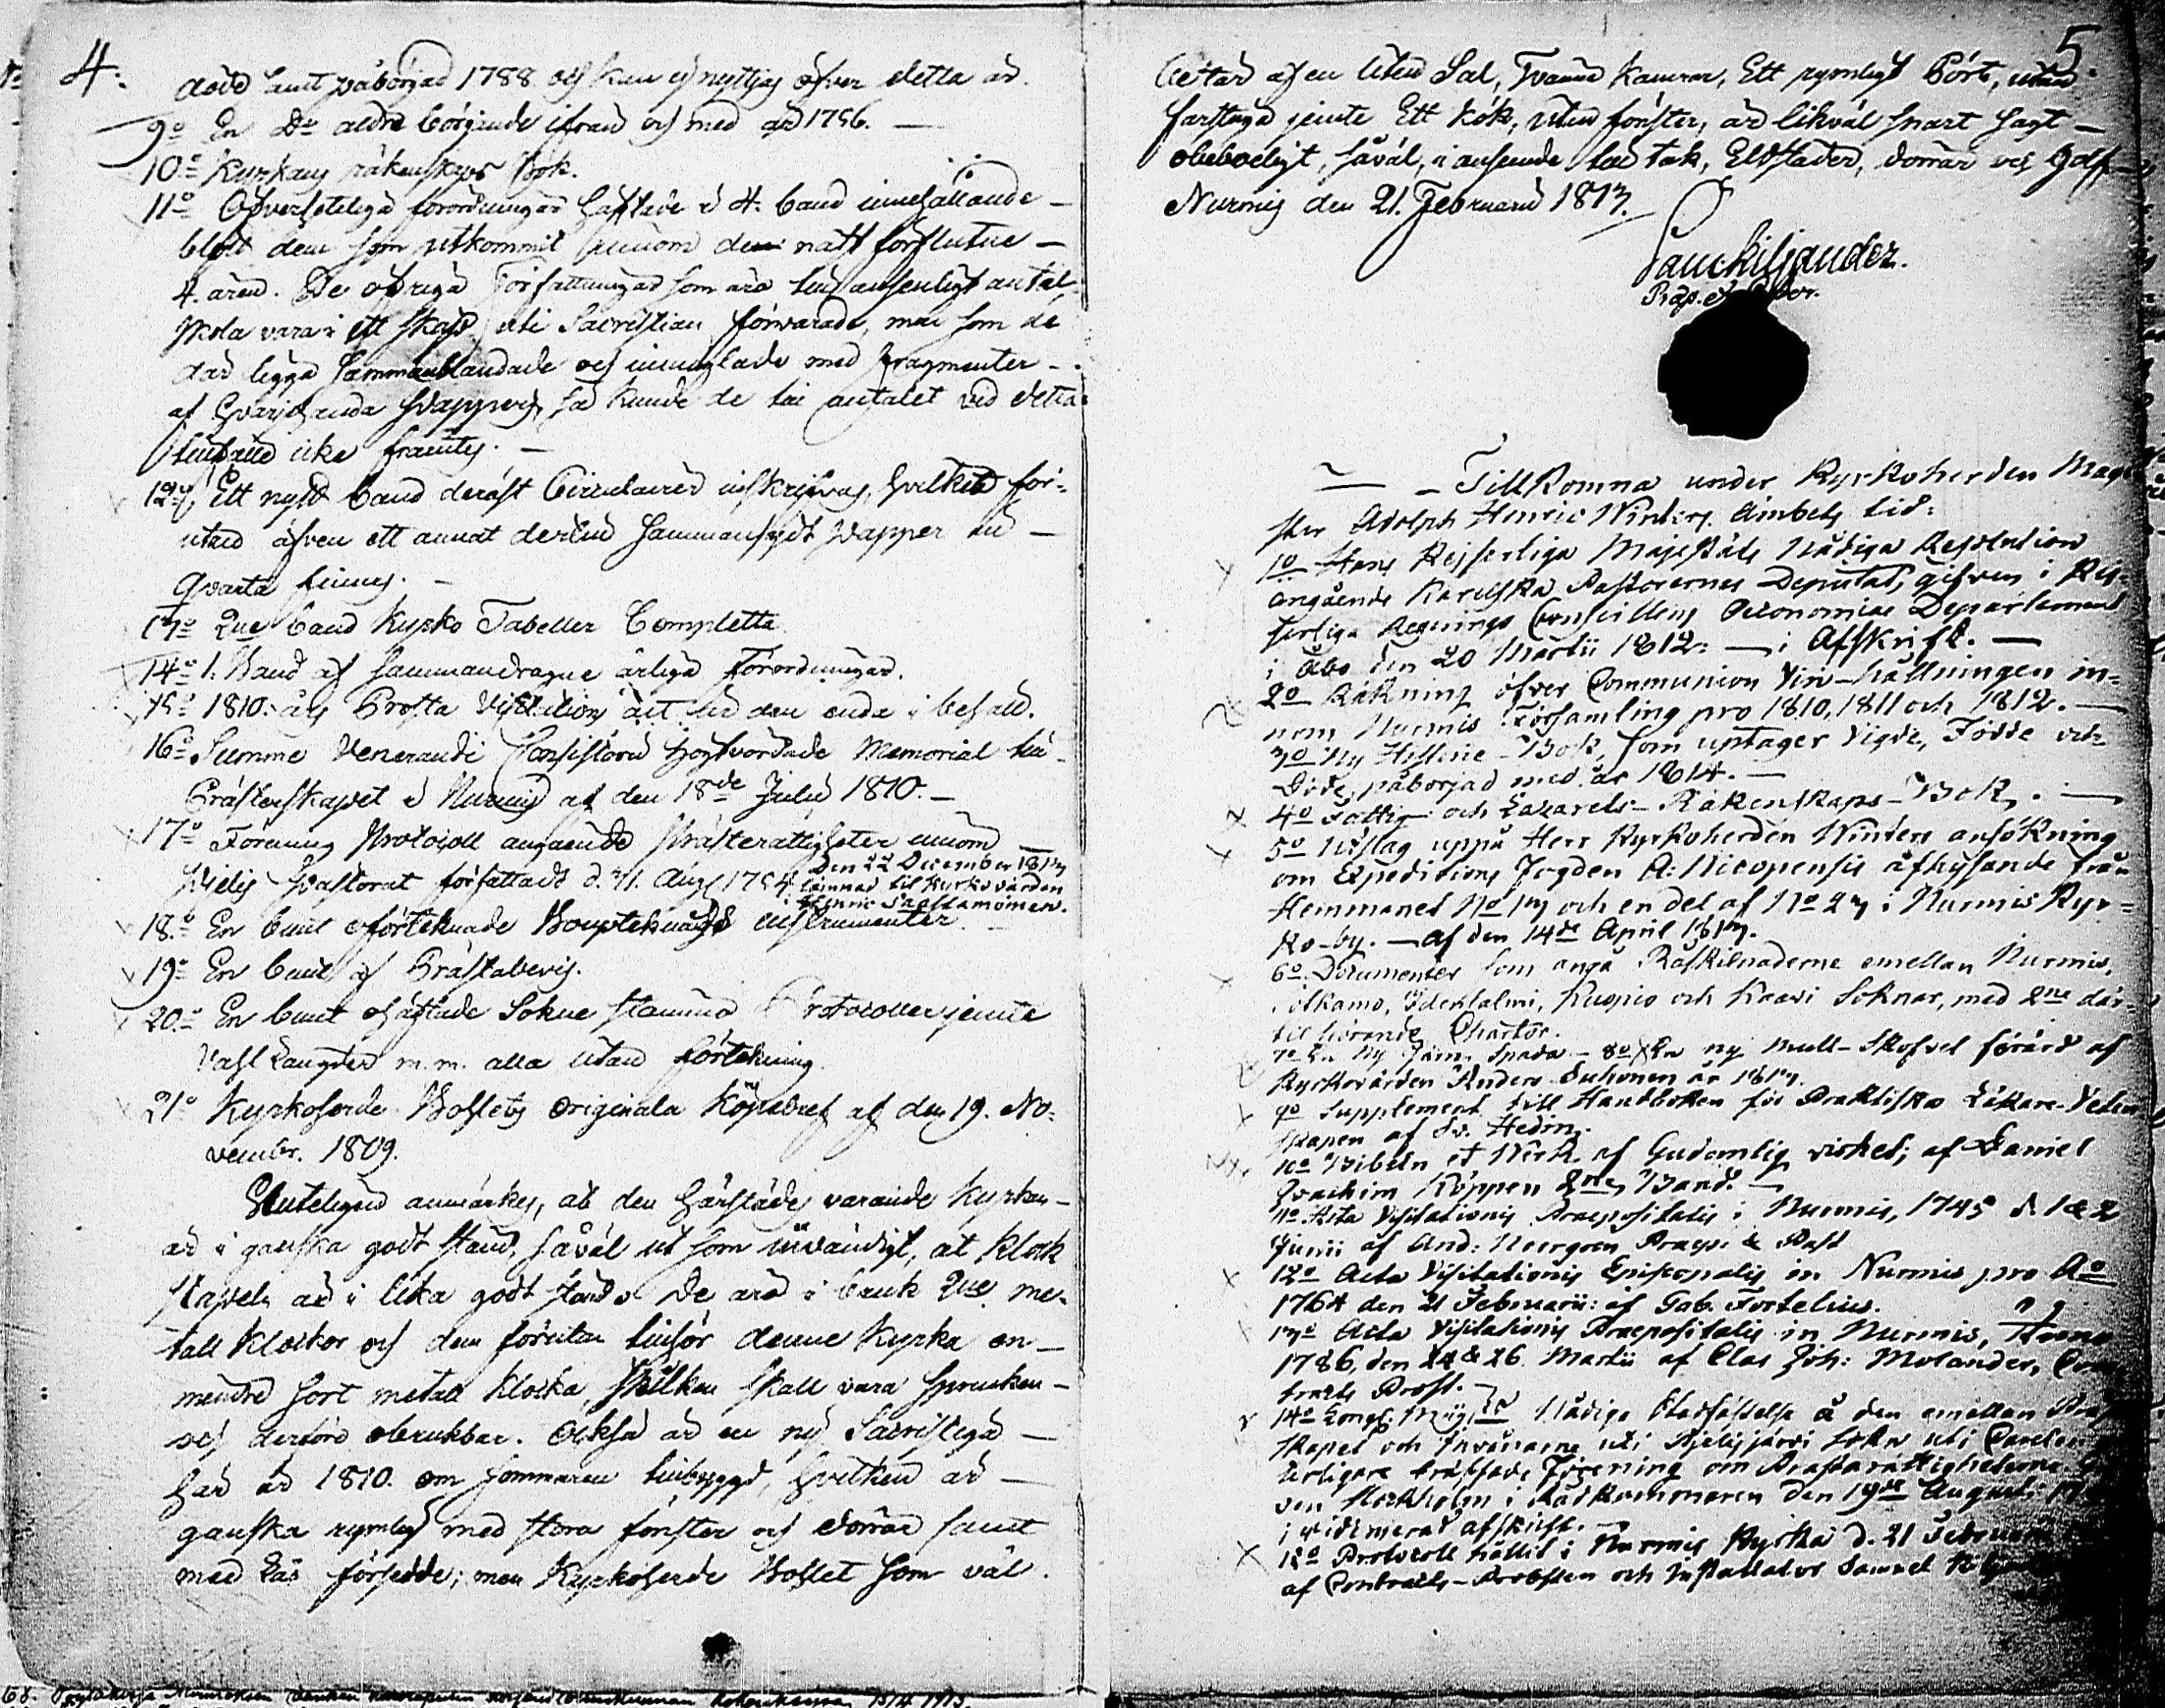 4.
döde samt påbörjad 1788 och kan ej nyttjas öfver detta år.
9o En Do äldre börjande ifrån och med år 1756. —
10o Kyrkans räkenskaps Bok.
11o Öfverfotliga förordningar häftade i 4. band innehållande —
blott dem som utkommit innom de nätt förflutne —
4. åren. De öfriga Författningar som äro till ansenligt antal,
skola vara i ett skåp uti Sacristian förvarade, men som de
där ligga sammanblandade och med fragmenter -
af hvarjehanda papper, så kunde de till antalet vid detta
tillfälle icke framtes. —
12o Ett nytt band deräst Circulairer inskrifvas, hvilket för-
utan äfven ett annat dertill sammansydt papper in —
qvarto finnes. —
13o 2ne band Kyrko Tabeller Completta
14o 1. Band af sammandragne årliga Förordningar.
15o 1810. års Prosta Visitations act är den enda i behåll.
16o Summe Venerandi Consistorii Högtvördade Memorial till
Prästerskapet i Nurmis af den 18de Julii 1810. —
17o Förenings Protocoll angående Prästerättigheter innom —
Pjelis Pastorat författadt d. 31. Aug. 1754
Den 22 December 1813
lämnad til Kyrkovärden
Henric Saastamoinen.
18o En bunt oförteknade Bouptekningds instrumenter.
19o En bunt af Prästabevis.
20o En bunt ohäftade Sokne stämmo Protocoller jemte
Vahl Längder m.m. alla utan förtekning.
21o Kyrkoherde Bohlets originala Köpebref af den 19. No-
vembr. 1809.
Sluteligen anmärkes, at den härstädes varande Kyrkan —
är i ganska godt stånd, såväl ut som invändigt, at Klock
stapeln är i lika godt stånd. De äro i bruk 2ne me-
tall Klockor och dem förutan tillhör denne Kyrka en —
mindre sort metall Klocka, hvilken skall vara sprucken —
och derföre obrukbar. Också är en ny Sacristiga —
här år 1810. om sommaren tillbyggd, hvilken är —
ganska rymlig med stora fönster och dörrar samt
med Lås försedde; men Kyrkoherde Bohlet som väl
5.
består af en liten Sal, Tvänne Kamrar, Ett rymligt Pört, utan
farstuga jemte Ett Kök, utan fönster, är likväl snart sagt —
obeboeligt, såväl, i anseende till tak, Eldstäder, dörrar och golf —
Nurmis den 21. Februarii 1813.
Sam. Kiljander.
Præp. et Pastor.
— Tillkomna under Kyrkoherden Magi-
ster Adolph Henric Winters Ämbets tid:
1o Hans Kejserliga Majestäts Nådiga Resolution
angående Karelska Pastorernes Deputat, gifven i Kej-
serliga Regerings Conseillens Oeconomiae Departement
i Åbo den 20 Martii 1812. — i Afskrift. —
2o Räkning öfver Communion Vin-hållningen in-
nom Nurmis Församling pro 1810, 1811 och 1812. —
3o Ny Historie-Bok, som uptager Vigde, Födde och
Döde, påbörjad med år 1814. —
4o Fattig- och Lazarets-Räkenskaps-Bok. —
5o Utslag uppå Herr Kyrkoherden Winters ansökning
om Expeditions Fogden A: Nicopensis afhysande från
Hemmanet No 13 och en del af No 23 i Nurmis Kyr-
ko-by. — af den 14de April 1813.
6o Documenter som angå Råskilnaderne emellan Nurmis,
Sotkamo, Idensalmi, Kuopio och Kaavi Soknar, med 2ne där-
til hörande Chartor.
7o En Ny Järn Spada — 8o En ny Mull-Skofvel förärd af
Kyrkovärden Anders Suhonen år 1813.
9o Supplement till Handboken för Praktiska Läkare-Veten
skapen af Sv. Hedin.
10o Bibeln et Verk af Gudomlig vishet; af Daniel
Joachim Köppen 2ne Band. —
11o Acta Visitationis Praepositalis i Nurmis, 1745 d. 1 & 2
Junii af And: Neergren Praep: & Past
12o Acta Visitationis Episcopalis in Nurmis pro Ao
1764 den 21 Februarii: af Gab. Fortelius.
13o Acta Visitationis Praepositalis in Nurmis, Anno
1786, den 24 & 26 Martii af Clas Joh: Molander,
tracts Prost. —
14o Kongl. Maj:ts Nådiga Stadfästelse å den emellan
skapet och Invånarne uti Pjelisjärvi Sokn uti
träffade Förening om Prästarättigheterna
ven Stockholm i Rådkammaren den 19de Augusti
i vidimerad afskrift. —
15o Protocoll hållit i Nurmis Kyrka d. 21 Februarii
af Contracts-Probsten och Installator Samuel